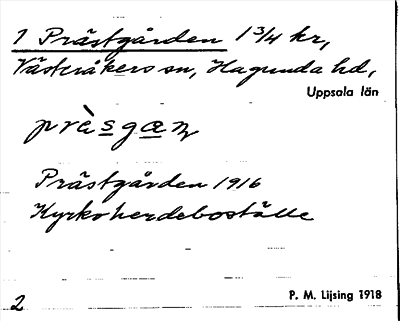 1 Prästgården 1 3/4 kr,
Västeråkers sn, Hagunda hd,
Uppsala län
Prästgården 1916
Kyrkoherdeboställe
2
P. M. Lijsing 1918